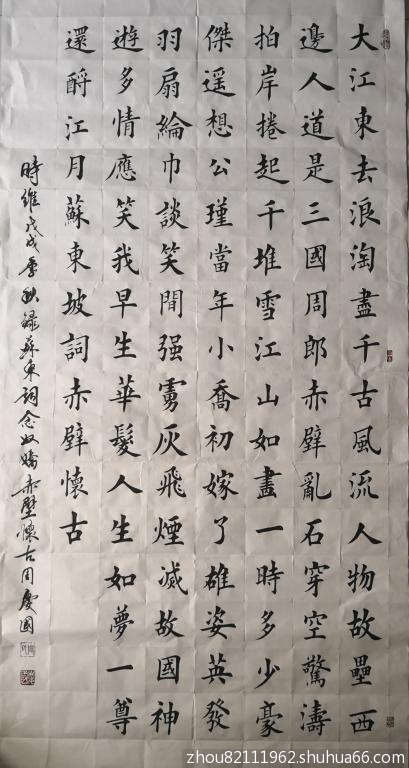 大江東去浪淘盡千古風流人物故壘西
邊人道是三國周郎赤壁亂石穿空驚濤
拍岸捲起千堆雪江山如畫一時多少豪
傑遥想公瑾當年小喬初嫁了雄姿英發
羽扇綸巾談笑間强虜灰飛煙滅故國神
遊多情應笑我早生華髮人生如夢一尊
還酹江月蘇東坡詞赤壁懷古
時維戊戌秋録蘇東詞念奴嬌赤壁懷古周慶國
zhou82111962.shuhua66.com